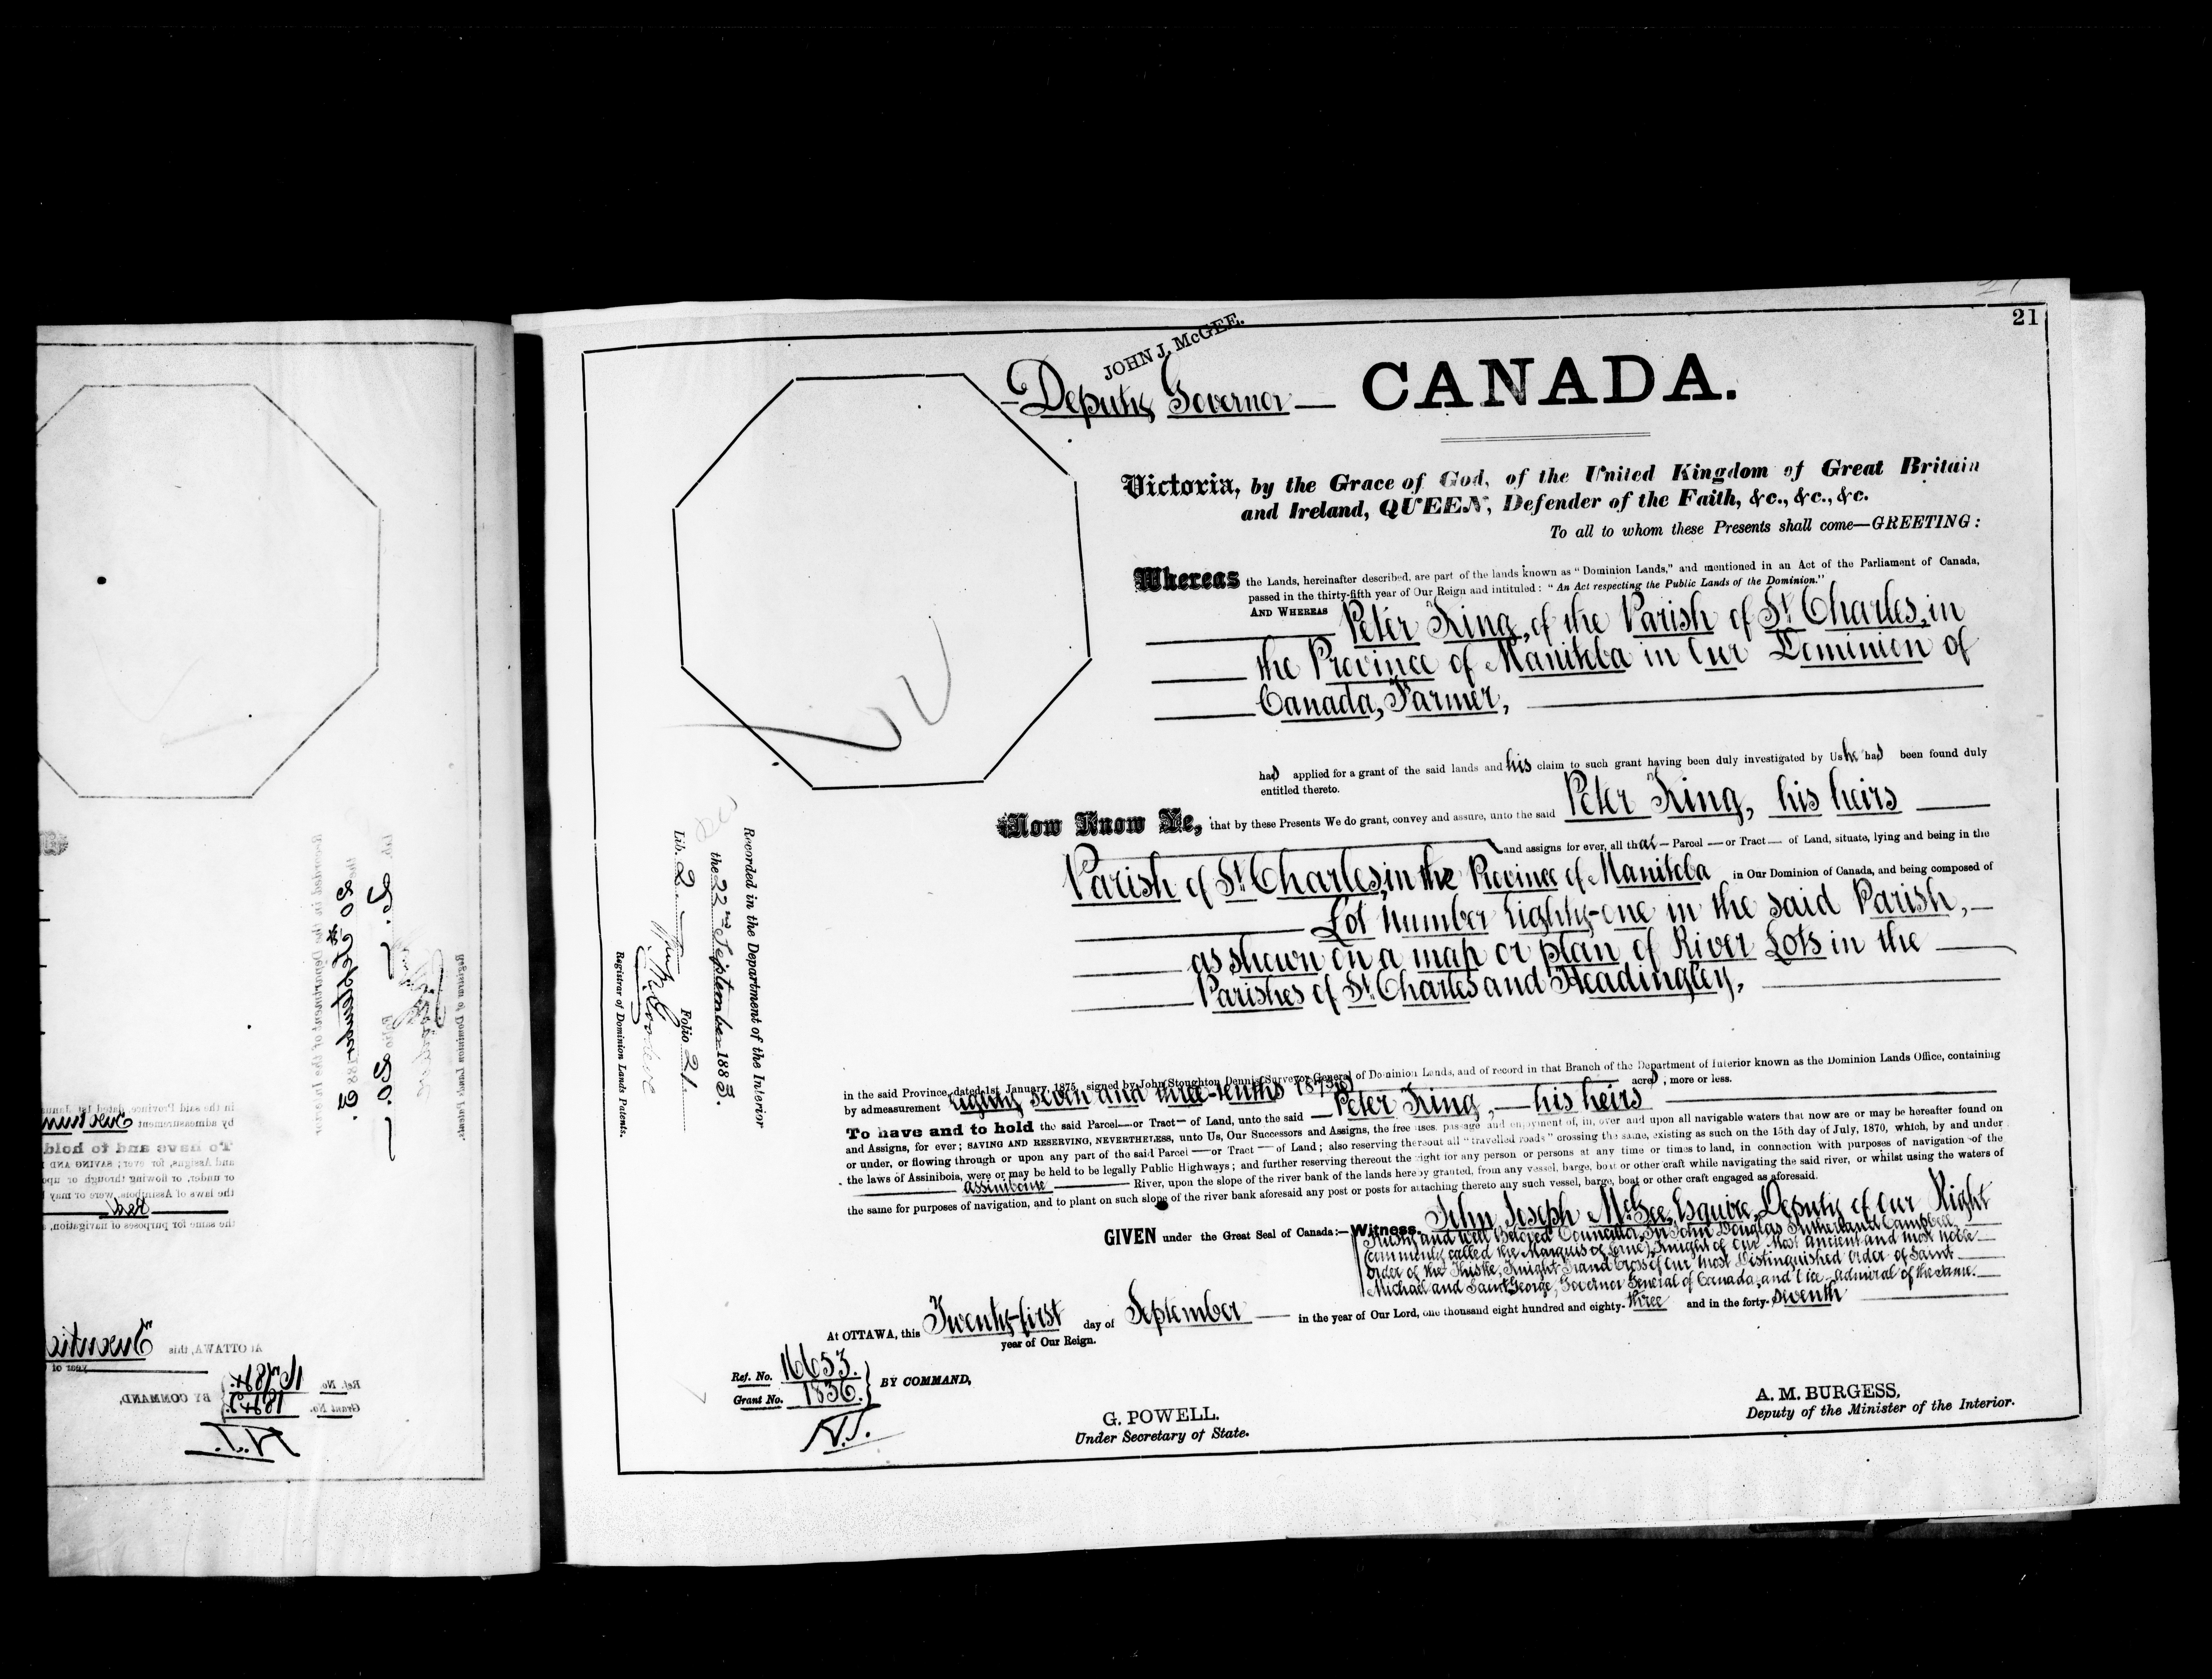 21
JOHN J. McGEE.
Deputy Governor — CANADA.
Victoria, by the Grace of God, of the United Kingdom of Great Britain
and Ireland, QUEEN, Defender of the Faith, &c., &c., &c.
To all to whom these Presents shall come—GREETING:
Whereas the Lands, hereinafter described, are part of the lands known as "Dominion Lands," and mentioned in an Act of the Parliament of Canada,
passed in the thirty-fifth year of Our Reign and intituled: "An Act respecting the Public Lands of the Dominion."
AND WHEREAS Peter King, of the Parish of St. Charles, in
the Province of Manitoba in Our Dominion of
Canada, Farmer,
had applied for a grant of the said lands and his claim to such grant having been duly investigated by Us he had been found duly
entitled thereto.
Now Know Ye, that by these Presents We do grant, convey and assure, unto the said Peter King, his heirs
and assigns for ever, all that — Parcel — or Tract — of Land, situate, lying and being in the
Parish of St. Charles, in the Province of Manitoba in Our Dominion of Canada, and being composed of
Lot number Eighty-one in the said Parish,—
as shewn on a map or plan of River Lots in the
Parishes of St. Charles and Headingley,
in the said Province, dated 1st January, 1875, signed by John Stoughton Dennis, Surveyor General of Dominion Lands, and of record in that Branch of the Department of Interior known as the Dominion Lands Office, containing
by admeasurement Eighty seven and three-tenths acres, more or less.
To have and to hold the said Parcel—or Tract— of Land, unto the said — Peter King, — his heirs
and Assigns, for ever; SAVING AND RESERVING, NEVERTHELESS, unto Us, Our Successors and Assigns, the free uses, passage and enjoyment of, in, over and upon all navigable waters that now are or may be hereafter found on
or under, or flowing through or upon any part of the said Parcel — or Tract — of Land; also reserving thereout all "travelled roads" crossing the same, existing as such on the 15th day of July, 1870, which, by and under
the laws of Assiniboia, were or may be held to be legally Public Highways; and further reserving thereout the right for any person or persons at any time or times to land, in connection with purposes of navigation of the
Assiniboine River, upon the slope of the river bank of the lands hereby granted, from any vessel, barge, boat or other craft while navigating the said river, or whilst using the waters of
the same for purposes of navigation, and to plant on such slope of the river bank aforesaid any post or posts for attaching thereto any such vessel, barge, boat or other craft engaged as aforesaid.
GIVEN under the Great Seal of Canada:—Witness, John Joseph McGee, Esquire, Deputy of Our Right
Trusty and Well Beloved Councillor, Sir John Douglas Sutherland Campbell,
(commonly called the Marquis of Lorne), Knight of Our Most Ancient and most noble
Order of the Thistle, Knight Grand Cross of Our most Distinguished Order of Saint
Michael and Saint George, Governor General of Canada, and Vice-Admiral of the same.
At OTTAWA, this Twenty-first day of September — in the year of Our Lord, one thousand eight hundred and eighty-three and in the forty-seventh
year of Our Reign.
Ref. No. 16653.
Grant No. 1836.
BY COMMAND,
G. POWELL.
Under Secretary of State.
A. M. BURGESS,
Deputy of the Minister of the Interior.
Recorded in the Department of the Interior
the 22nd September 1883.
Lib. 2 Folio 21.
Registrar of Dominion Lands Patents.